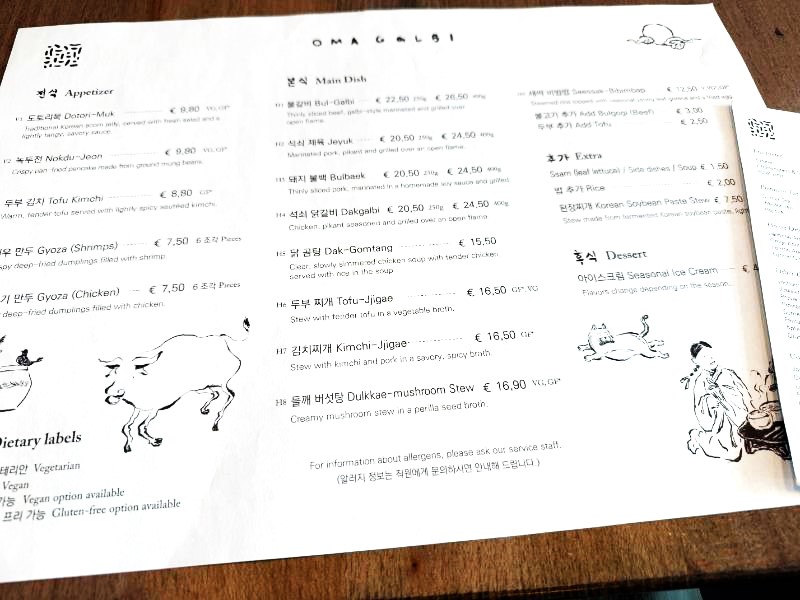 OMA GALBI
전식 Appetizer
도토리묵 Dotori-Muk € 9,80 VG, GF*
Traditional Korean acorn jelly, served with fresh salad and a
lightly tangy, savory sauce.
녹두전 Nokdu-Jeon € 9,80 VG, GF*
Crispy pan-fried pancake made from ground mung beans.
두부 김치 Tofu Kimchi € 8,80 GF*
Warm, tender tofu served with lightly spicy sautéed kimchi.
만두 Gyoza (Shrimps) € 7,50 6 조각 Pieces
deep-fried dumplings filled with shrimp.
만두 Gyoza (Chicken) € 7,50 6 조각 Pieces
deep-fried dumplings filled with chicken.
Dietary labels
Vegetarian
Vegan
가능 Vegan option available
프리 가능 Gluten-free option available
본식 Main Dish
H1 불갈비 Bul-Galbi € 22,50 250g € 26,50 400g
Thinly sliced beef, galbi-style marinated and grilled over
open flame.
H2 석쇠 제육 Jeyuk € 20,50 250g € 24,50 400g
Marinated pork, pikant and grilled over an open flame.
H3 돼지 불백 Bulbaek € 20,50 250g € 24,50 400g
Thinly sliced pork, marinated in a homemade soy sauce and grilled.
H4 석쇠 닭갈비 Dakgalbi € 20,50 250g € 24,50 400g
Chicken, pikant seasoned and grilled over an open flame
H5 닭 곰탕 Dak-Gomtang € 15,50
Clear, slowly simmered chicken soup with tender chicken
served with rice in the soup
H6 두부 찌개 Tofu-Jjigae € 16,50 GF*, VG
Stew with tender tofu in a vegetable broth.
H7 김치찌개 Kimchi-Jjigae € 16,50 GF*
Stew with kimchi and pork in a savory, spicy broth
H8 들깨 버섯탕 Dulkkae-mushroom Stew € 16,90 VG, GF*
Creamy mushroom stew in a perilla seed broth.
For information about allergens, please ask our service staff.
(알러지 정보는 직원에게 문의하시면 안내해 드립니다.)
새싹 비빔밥 Saessak-Bibimbap € 12,50
Steamed rice topped with seasonal young leaf greens and a fried egg
불고기 추가 Add Bulgogi (Beef) € 3,00
두부 추가 Add Tofu € 2,50
추가 Extra
Ssam (leaf lettuce) / Side dishes / Soup € 1,50
밥 추가 Rice € 2,00
된장찌개 Korean Soybean Paste Stew € 7,50
Stew made from fermented Korean soybean paste,
후식 Dessert
아이스크림 Seasonal Ice Cream €
Flavors change depending on the season.